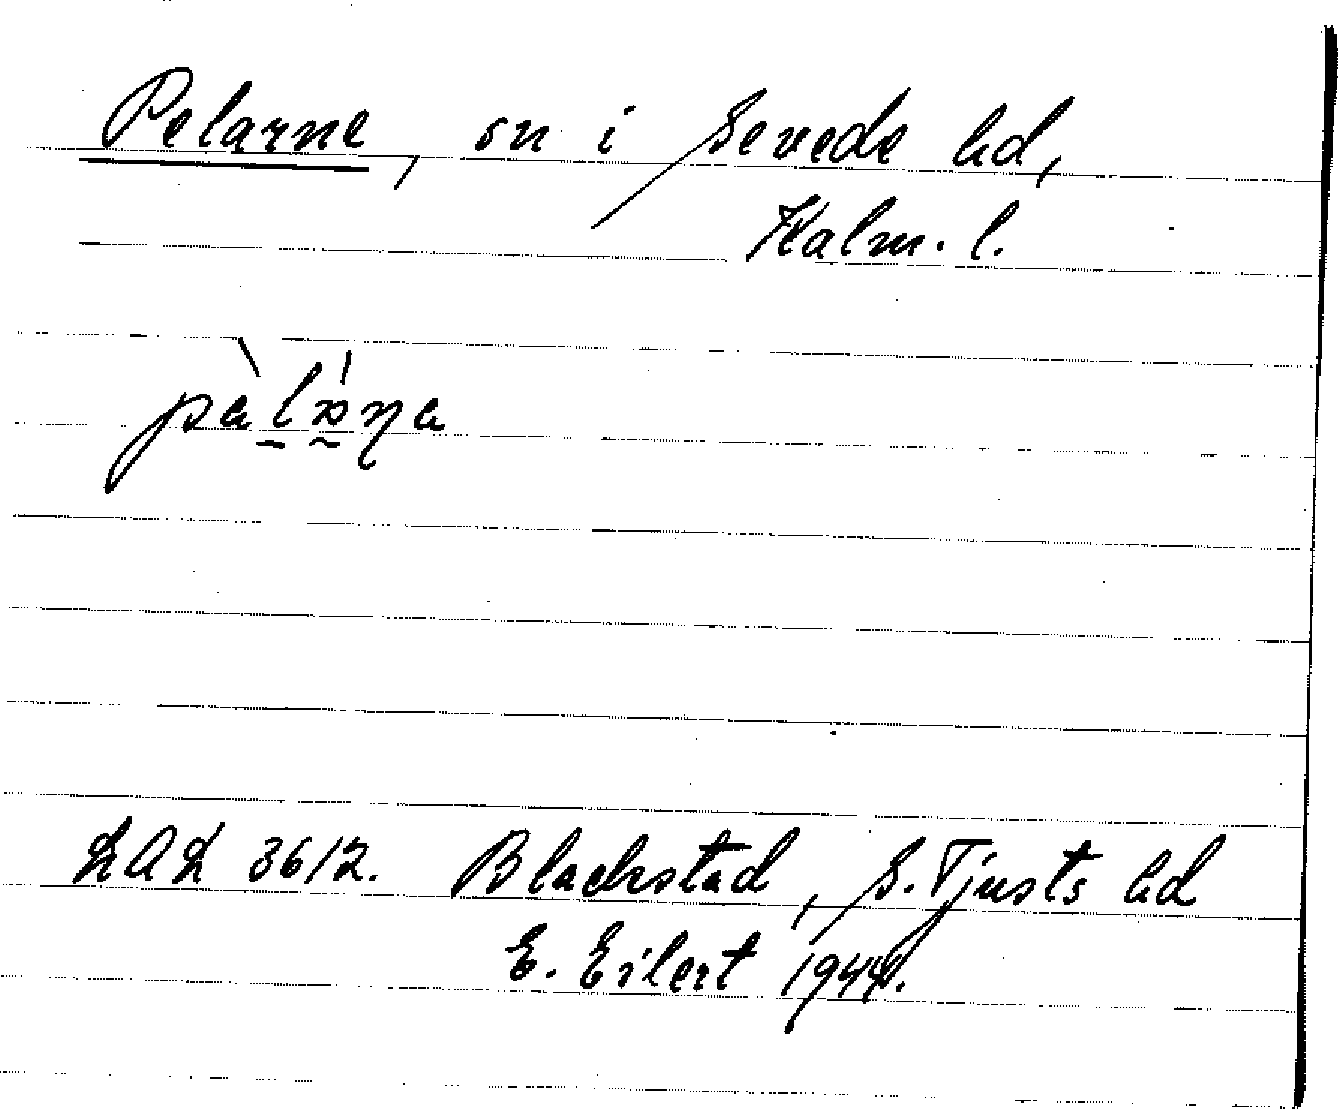 Pelarne, sn i Sevede hd,
Kalm. l.
LAL 3612. Blackstad, S. Tjusts hd
E. Eilert 1944.